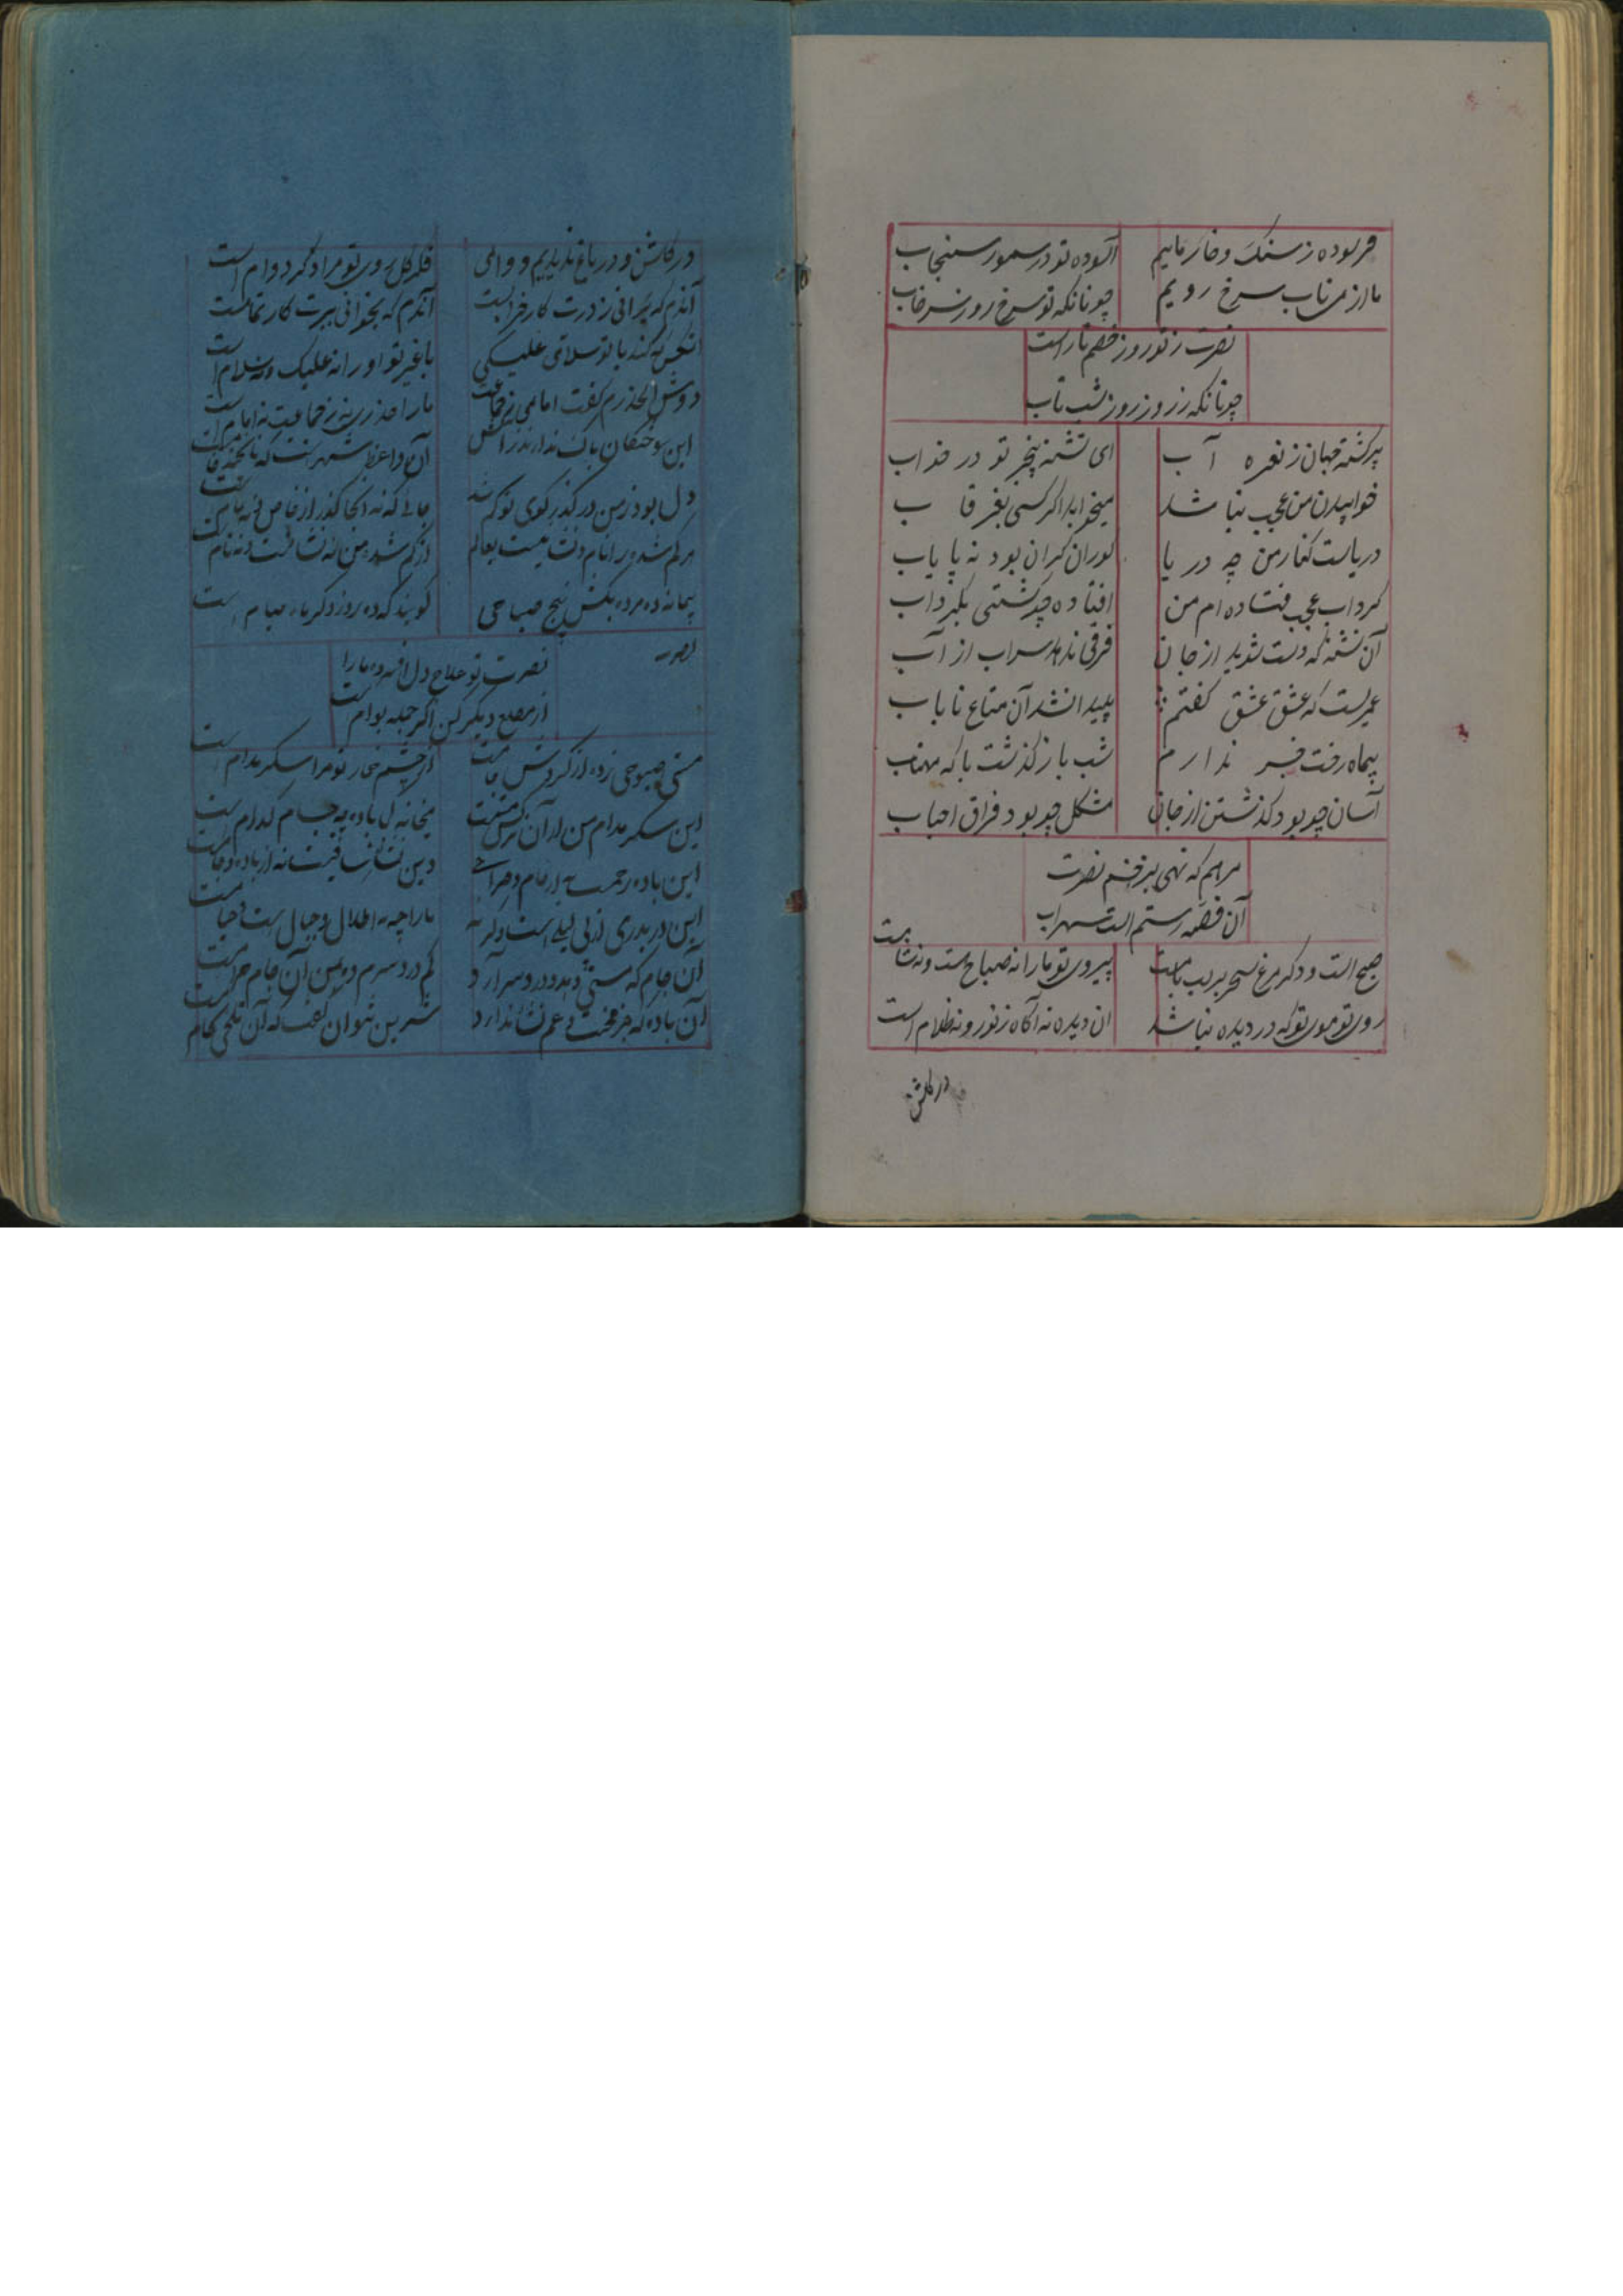 فرسوده ز سنک و خار مائیم آسوده تو در سمور سنجاب
ما از می ناب سرخ رویم چونانکه تو سرخ رو ز سرخاب
نصرت ز تو روز خصم تار است
چونانکه ز روز روز شب تاب
پرکشته جهان ز نعره آب ای تشنه پنجر تو در خواب
خوابیدن من عجب نباشد میخوابد اگر کسی بغرقاب
دریاست کنار من چه دریا کوران کران بود نه پایاب
کرداب عجب فتاده ام من افتاده چو کشتی بکرداب
آن تشنه که دست شوید از جان فرقی ندهد سراب از آب
عمریست که عشق عشق کفتم پیدا نشد آن متاع نایاب
پیماه رفت خبر ندارم شب باز کذشت یا که مهتاب
آسان چو بود کذشتن از جان مشکل چو بود فراق احباب
مرهم که نهی بزخم نصرت
آن قصه رستم است سهراب
صبح است و دکر مرغ سحر بر لب بامست بیروی تو ما را نه صباح است و نه شامست
روی تو موی تو که در دیده نباشد ان دیده نه آکاه ز نور و نه ظلام است
در کلشن
در کلشن و در باغ ندیدیم و دوامی کل روی تو مرا دکر دوام است
آندم که برانی ز درت کار خرابست آندم که بخوانی ببرت کار تمامست
آنکس که کند با تو سلامی علیکی با غیر تو او را نه علیک و نه سلام است
دوش الحذرم کفت امامی ز جماعت ما را حذر نه ز جماعت نه امام است
این سوختکان باک ندارند ز آتش آن واعظ شهر است که ناپخته خام است
دل بود ز من در کذر کوی تو کم شد جائی که نه آنجا کذر از خاص نه عام است
هر کم شده را نام و نشانیست بعالم از کم شده من نه نشانست و نه نام است
پیمانه ده مرده بکش پنج صباحی کویند که ده روز دکر ماه صیام است
نصرت تو علاج دل افسرده ما را
از مطلع دیکر کن اکر جمله بوام است
مستی صبوحی زده از کردش جامست از چشم خمار تو مرا سکر مدام است
این سکر مدام من از آن نرکس مستست میخانه کدام است
این باده رحمت نه از جام و صراحی وین نشاه ساقیست نه از باده و جامست
این دربدری از پی لیلی است و کرنه ما را چه به اطلال و جبال است و خیامست
آن جام که مستی دهد و درد سر آرد کم درد سرم ده من آن جام حرامست
آن باده که جز محنت و غم نشاه ندارد شیرین نتوان کفت که آن تلخی کام است